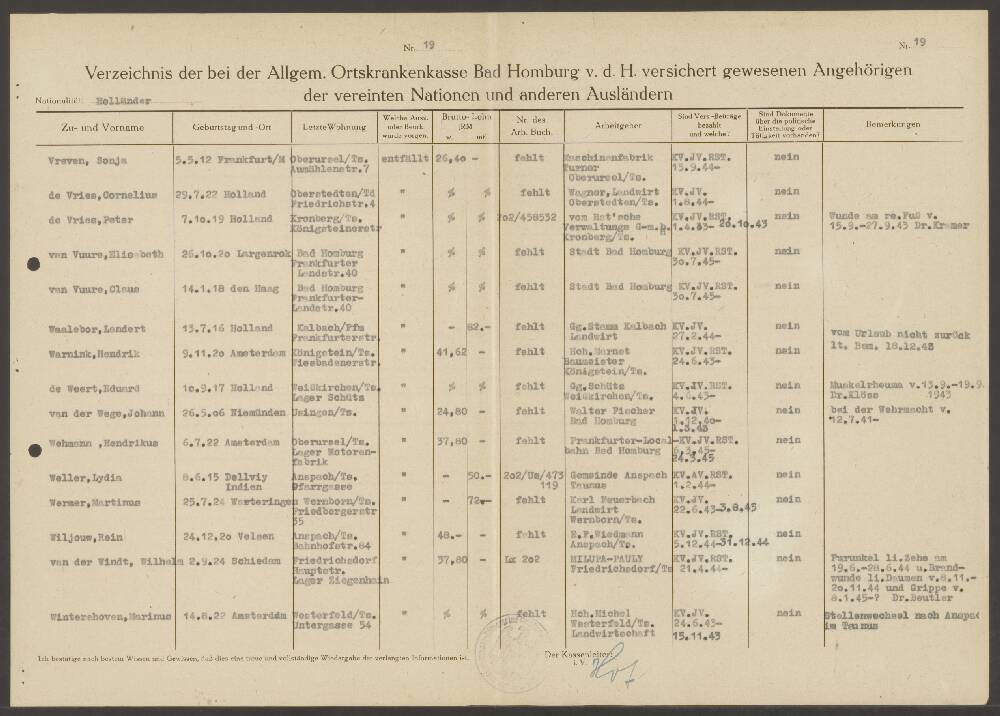 Nr. 19
Nr. 19
Verzeichnis der bei der Allgem. Ortskrankenkasse Bad Homburg v. d. H. versichert gewesenen Angehörigen
Nationalität: Holländer
der vereinten Nationen und anderen Ausländern
Zu- und Vorname Geburtstag und -Ort Letzte Wohnung Welche Ausw. oder Beurk. wurde vorgen. Brutto-Lohn RM w. mtl. Nr. des Arb. Buch. Arbeitgeber Sind Vers.-Beiträge bezahlt und welche? Sind Dokumente über die politische Einstellung oder Tätigkeit vorhanden? Bemerkungen
Vreven, Sonja 5.5.12 Frankfurt/M Oberursel/Ts. entfällt 26,40 - fehlt Maschinenfabrik KV.JV.RST. nein
Aumühlenstr.7 Turner 15.9.44-
Oberursel/Ts.
de Vries,Cornelius 29.7.22 Holland Oberstedten/Td " % % fehlt Wagner,Landwirt KV.JV. nein
Friedrichstr.4 Oberstedten/Ts. 1.8.44-
de Vries,Peter 7.10.19 Holland Kronberg/Ts. " % % 202/458532 vom Rat'sche KV.JV.RST. nein Wunde am re.Fuß v.
Königsteinerstr Verwaltungs G.m.b. 1.4.33- 26.10.43 15.9.-27.9.43 Dr.Kramer
Kronberg/Ts.
van Vuure,Elisabeth 26.10.20 Largenrok Bad Homburg " % % fehlt Stadt Bad Homburg KV.JV.RST. nein
Frankfurter 30.7.45-
Landstr.40
van Vuure,Claus 14.1.18 den Haag Bad Homburg " % % fehlt Stadt Bad Homburg KV.JV.RST. nein
Frankfurter- 30.7.45-
Landstr.40
Waalebor,Landert 13.7.16 Holland Kalbach/Ffm " - 82.- fehlt Gg.Stamm Kalbach KV.JV. nein vom Urlaub nicht zurück
Frankfurterstr. Landwirt 27.2.44- lt. Bem. 18.12.43
Warnink,Hendrik 9.11.20 Amsterdam Königstein/Ts. " 41,62 - fehlt Hch.Hornet KV.JV.RST. nein
Wiesbadenerstr. Baumeister 24.6.43-
Königstein/Ts.
de Weert,Eduard 10.9.17 Holland Weißkirchen/Ts. " % % fehlt Gg.Schütz KV.JV.RST. nein Muskelrheuma v.13.9.-19.9.
Lager Schütz Weißkirchen/Ts. 4.6.43- Dr.Klöse 1943
van der Wege,Johann 26.5.06 Niemünden Usingen/Ts. " 24,80 - fehlt Walter Fischer KV.JV. nein bei der Wehrmacht v.
Bad Homburg 1.12.40- 12.7.41-
1.3.43
Wehmann ,Hendrikus 6.7.22 Amsterdam Oberursel/Ts. " 37,80 - fehlt Frankfurter-Local- KV.JV.RST. nein
Lager Motoren- bahn Bad Homburg 6.3.45-
fabrik 24.3.45
Weller,Lydia 8.6.15 Dellviy Anspach/Ts. " - 50.- 202/Us/473 Gemeinde Anspach KV.AV.RST. nein
Indien Pfarrgasse 119 Taunus 1.2.44-
Wermer,Martinus 25.7.24 Warteringen Wernborn/Ts. " - 72.- fehlt Karl Feuerbach KV.JV. nein
Friedbergerstr Landwirt 22.6.43-3.8.45
35 Wernborn/Ts.
Wiljouw,Rein 24.12.20 Velsen Anspach/Ts. " 48.- - fehlt E.F.Wiedmann KV.JV.RST. nein
Bahnhofstr.84 Anspach/Ts. 5.12.44-31.12.44
van der Windt, Wilhelm 2.9.24 Schiedam Friedrichsdorf " 37,80 - Lx 202 MILUPA-PAULY KV.JV.RST. nein Furunkel li.Zehe am
Hauptstr. Friedrichsdorf/Ts 21.4.44- 19.6.-28.6.44 u.Brand-
Lager Ziegenhain wunde li.Daumen v.8.11.-
20.11.44 und Grippe v.
8.1.45-? Dr.Beutler
Wintershoven,Marinus 14.8.22 Amsterdam Westerfeld/Ts. " % % fehlt Hch.Michel KV.JV. nein Stellenwechsel nach Anspac
Untergasse 54 Westerfeld/Ts. 24.6.43- im Taunus
Landwirtschaft 15.11.43
Ich bestätige nach bestem Wissen und Gewissen, daß dies eine treue und vollständige Wiedergabe der verlangten Informationen ist.
Der Kassenleiter:
i. V.